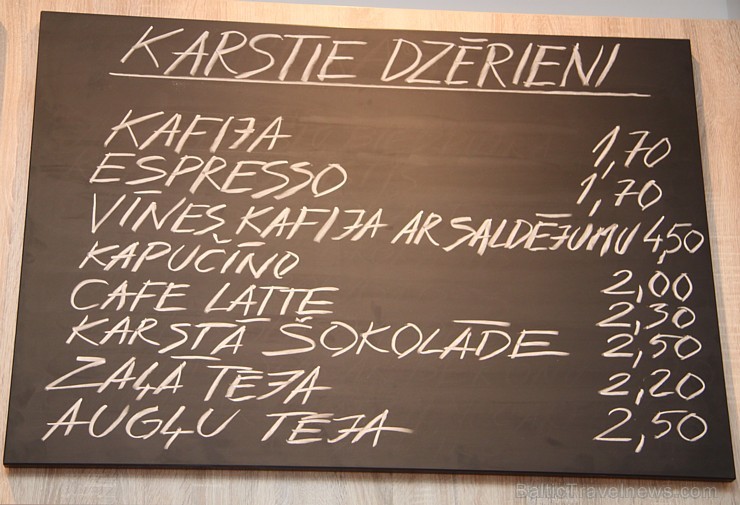 KARSTIE DZĒRIENI
KAFIJA 1,70
ESPRESSO 1,70
VĪNES KAFIJA AR SALDĒJUMU 4,50
KAPUČĪNO 2,00
CAFE LATTE 2,30
KARSTĀ ŠOKOLĀDE 2,50
ZAĻĀ TĒJA 2,20
AUGĻU TĒJA 2,50
BalticTravelnews.com